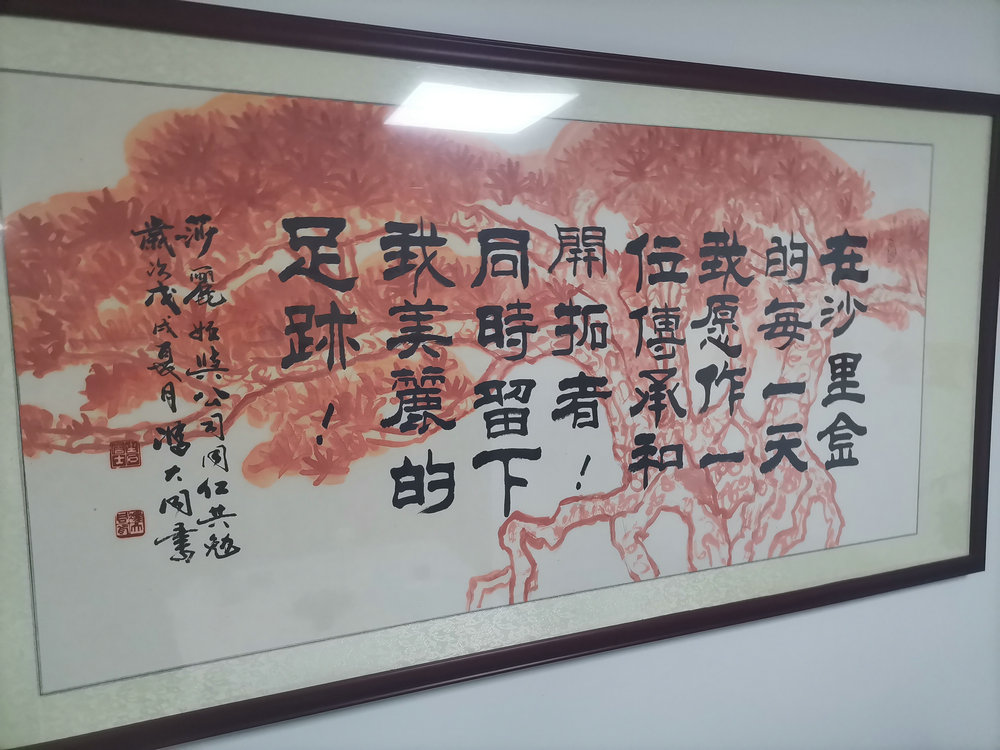 在沙里金
的每一天
我愿作一
位傳承和
開拓者！
同時留下
我美麗的
足跡！
莎麗姬與公司同仁共勉
歲次戊戌夏月馮大同書